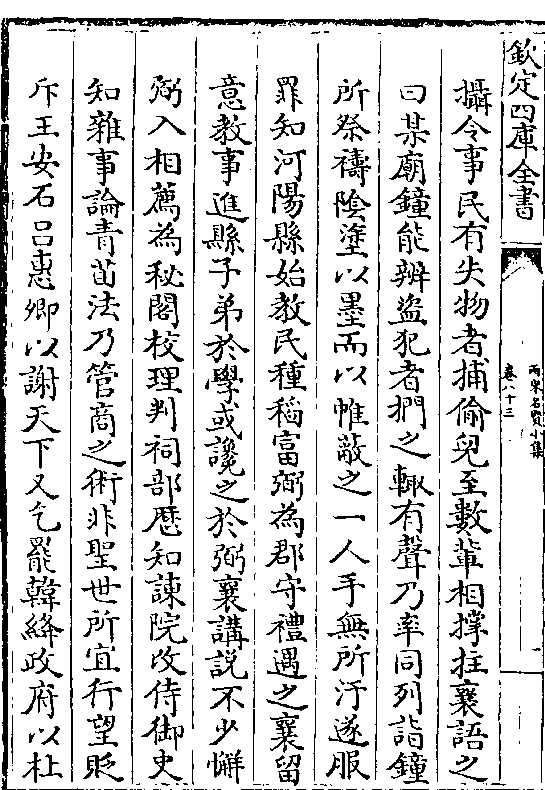 欽定四庫全書
兩宋名賢小集
卷八十三
攝令事民有失物者捕偷兒至數輩相撑拄襄語之
曰某廟鐘能辨盜犯者捫之輙有聲乃率同列詣鐘
所祭禱陰塗以墨而以帷蔽之一人手無所汙遂服
罪知河陽縣始教民種稻富弼為郡守禮遇之襄留
意教事進縣子弟於學或讒之於弼襄講説不少懈
弼入相薦為秘閣校理判祠部歴知諫院改侍御史
知雜事論青苗法乃管商之術非聖世所宜行望貶
斥王安石吕惠卿以謝天下又乞罷韓絳政府以杜